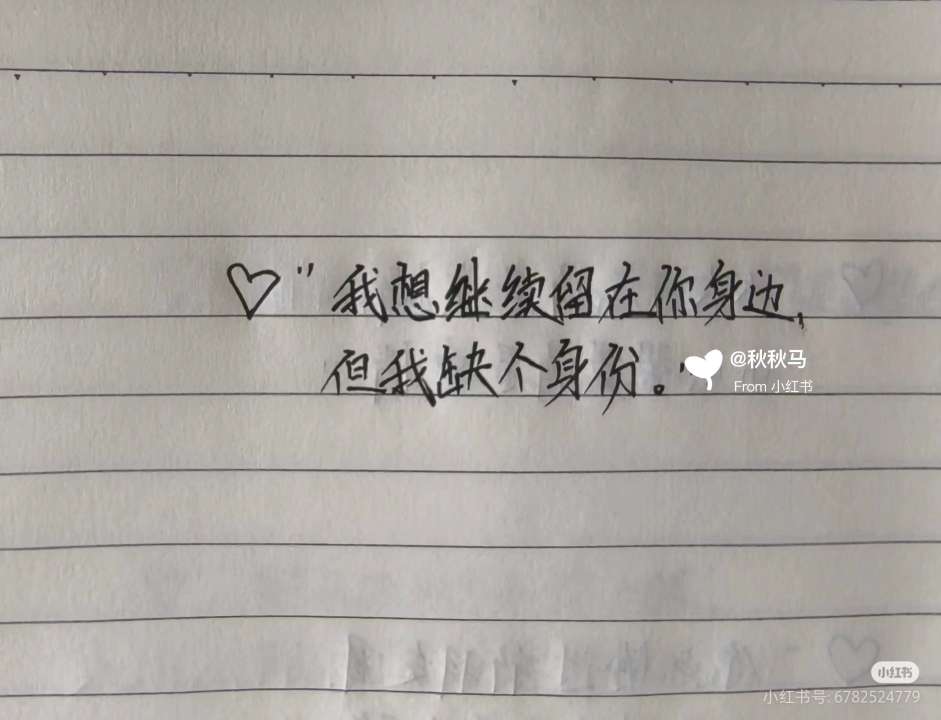 ♡"我想继续留在你身边,
但我缺个身份。"
@秋秋马
From 小红书
小红书
小红书号: 6782524779